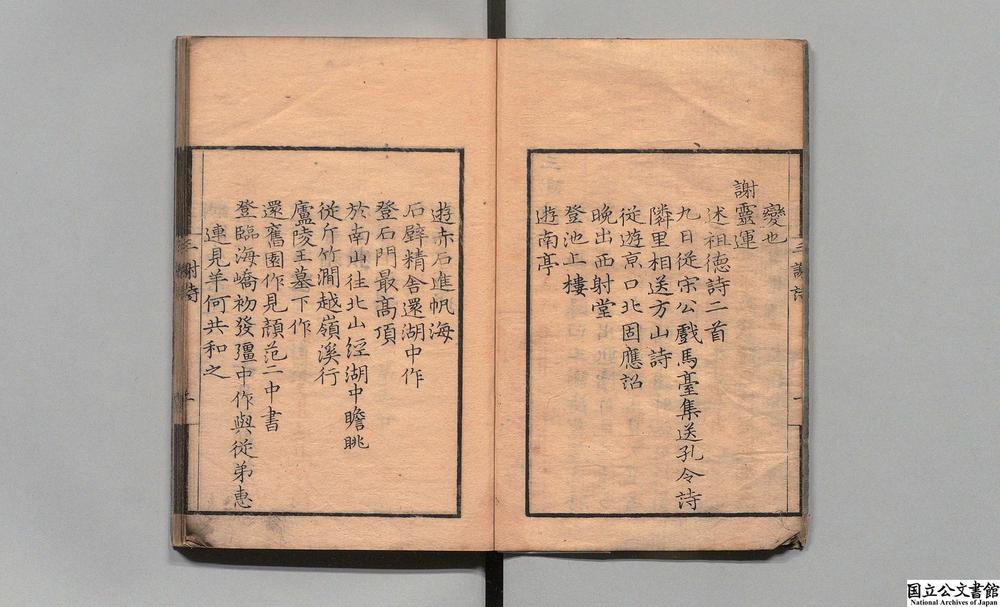 變也
謝靈運
述祖德詩二首
九日從宋公戲馬臺集送孔令詩
隣里相送方山詩
從遊京口北固應詔
晚出西射堂
登池上樓
遊南亭
遊赤石進帆海
石壁精舍還湖中作
登石門最髙頂
於南山往北山經湖中瞻眺
從斤竹澗越嶺溪行
廬陵王墓下作
還舊園作見顏范二中書
登臨海嶠初發彊中作與從弟惠
連見羊何共和之
三謝詩
国立公文書館
National Archives of Japan